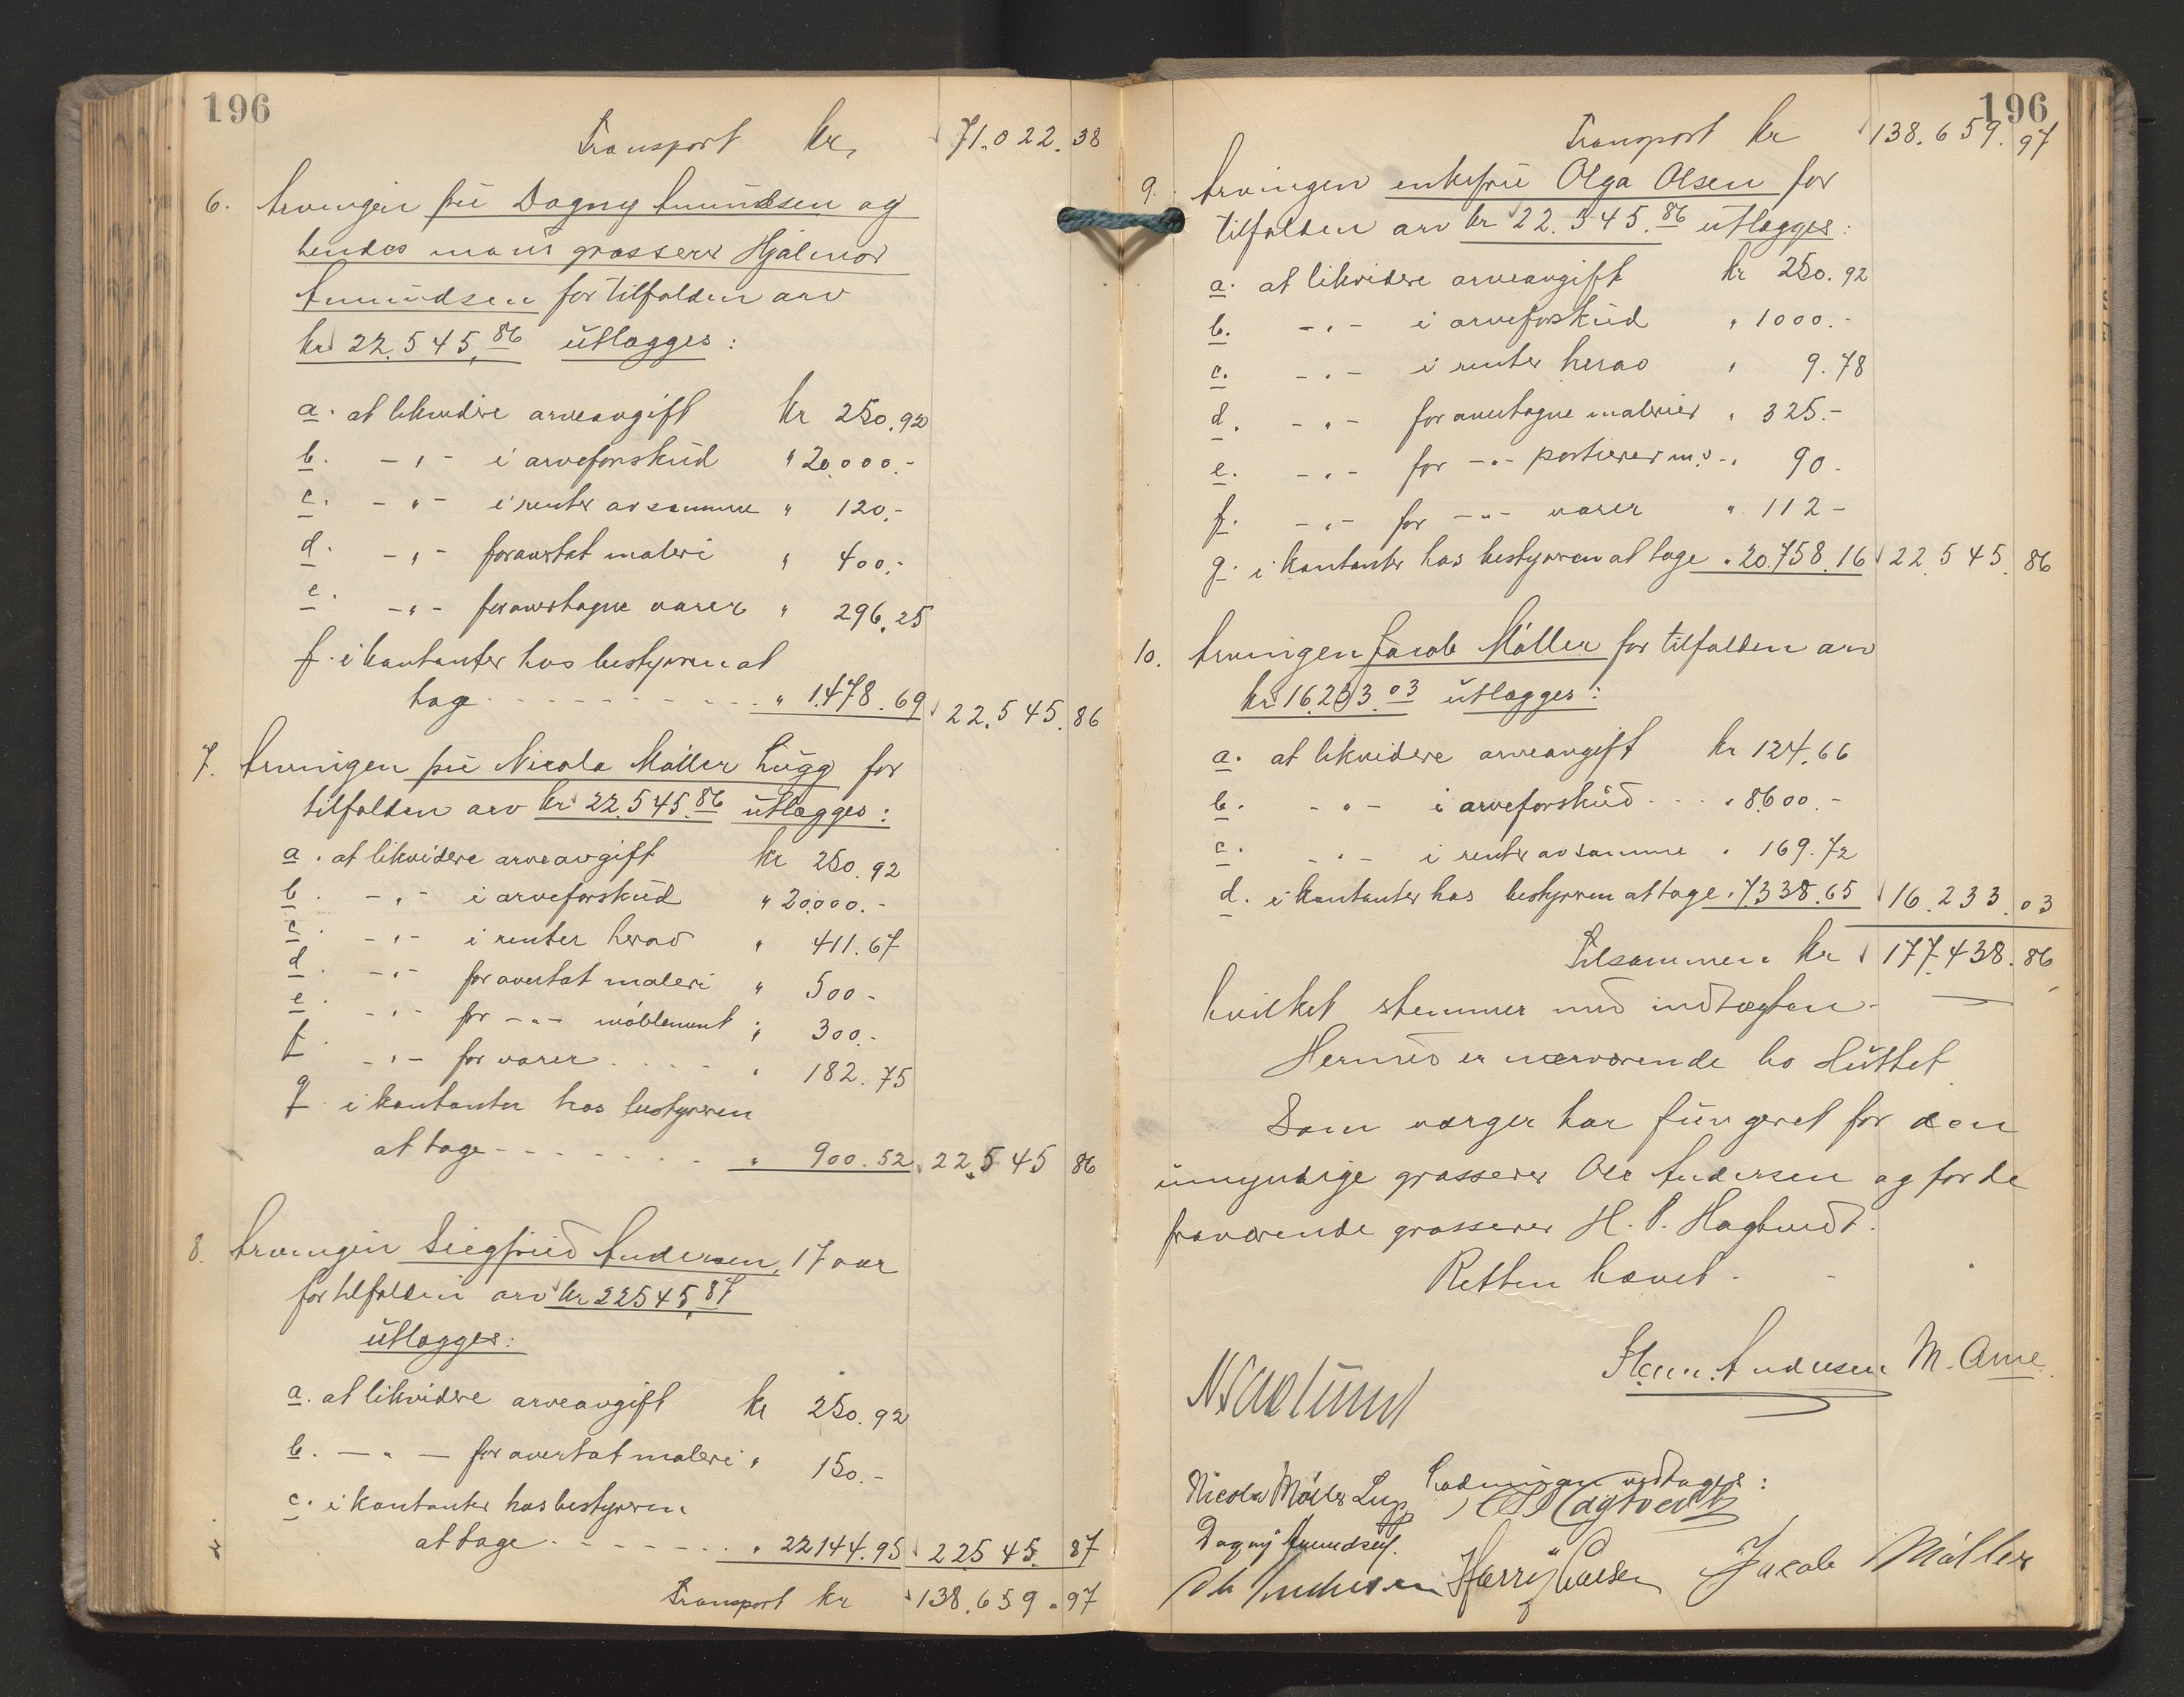 196
Transport kr. 71.022.38
6. Arvingen frú Dagny Amúndsen og
hendes mand grosserer Hjalmar
Amúndsen for tilfalden arv
kr 22.545.86 útlægges:
a. at likvidere arveavgift kr 250.92
b. -"- i arveforskúd " 20.000.-
c. -"- i renter av samme " 120.-
d. -"- for overtat maleri " 400.-
e. -"- for overtagne varer " 296.25
f. i kontanter hos bestyreren at
tage - - - - - - " 1.478.69 22.545.86
7. Arvingen frú Nicola Møller Lúgg for
tilfalden arv kr 22.545.86 útlægges:
a. at likvidere arveavgift kr 250.92
b. -"- i arveforskúd " 20.000.-
c. -"- i renter herav " 411.67
d. -"- for overtat maleri " 500.-
e. -"- for -"- møblement " 300.-
f. -"- for varer . . . . " 182.75
g. i kontanter hos bestyreren
at tage - - - - - - " 900.52 22.545 86
8. Arvingen Siegfried Andersen, 17 aar
for tilfalden arv kr 22545,87
útlægges:
a. at likvidere arveavgift kr 250.92
b. - " - for overtat maleri " 150.-
c. i kontanter hos bestyreren
at tage - - - - - - " 22144.95 22545. 87
Transport kr 138.659.97
196
Transport kr 138.659.97
9. Arvingen enkefrú Olga Olsen for
tilfalden arv kr 22.545.86 útlægges:
a. at likvidere arveavgift kr 250.92
b. -"- i arveforskúd " 1000.-
c. -"- i renter herav " 9.78
d. -"- for overtagne malerier " 325.-
e. -"- for -"- portierer m.v. " 90.-
f. -"- for -"- varer " 112 -
g. i kontanter hos bestyreren at tage " 20.758.16 22.545.86
10. Arvingen Jacob Møller for tilfalden arv
kr 16.233.03 útlægges:
a. at likvidere arveavgift kr 124.66
b. -"- i arveforskúd - - - " 8600.-
c. -"- i renter av samme " 169.72
d. i kontanter hos bestyreren at tage " 7338.65 16.233.03
Tilsammen kr 177.438.86
hvilket stemmer med indtægten.
Hermed er nærværende bo slúttet.
Som værger har fúngeret for den
úmyndige grosserer Ole Andersen og for de
fraværende grosserer H. P. Hagtvedt.
Retten hævet.
Herm. Andersen M. Arne
Ladningen vedtages:
Nicola Møller Lugg
Dagny Amundsen.
Ole Andersen Harry Olsen Jakob Møller